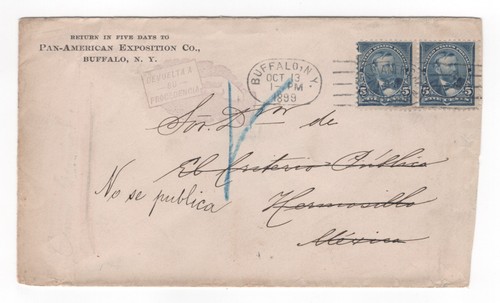 RETURN IN FIVE DAYS TO
PAN-AMERICAN EXPOSITION CO.,
BUFFALO, N. Y.
DEVUELTA A
SU
PROCEDENCIA
BUFFALO, N.Y.
OCT 13
1- PM
1899
5 5
5 5
Sōr. Dor de
El Criterio Público
No se publica
Hermosillo
México